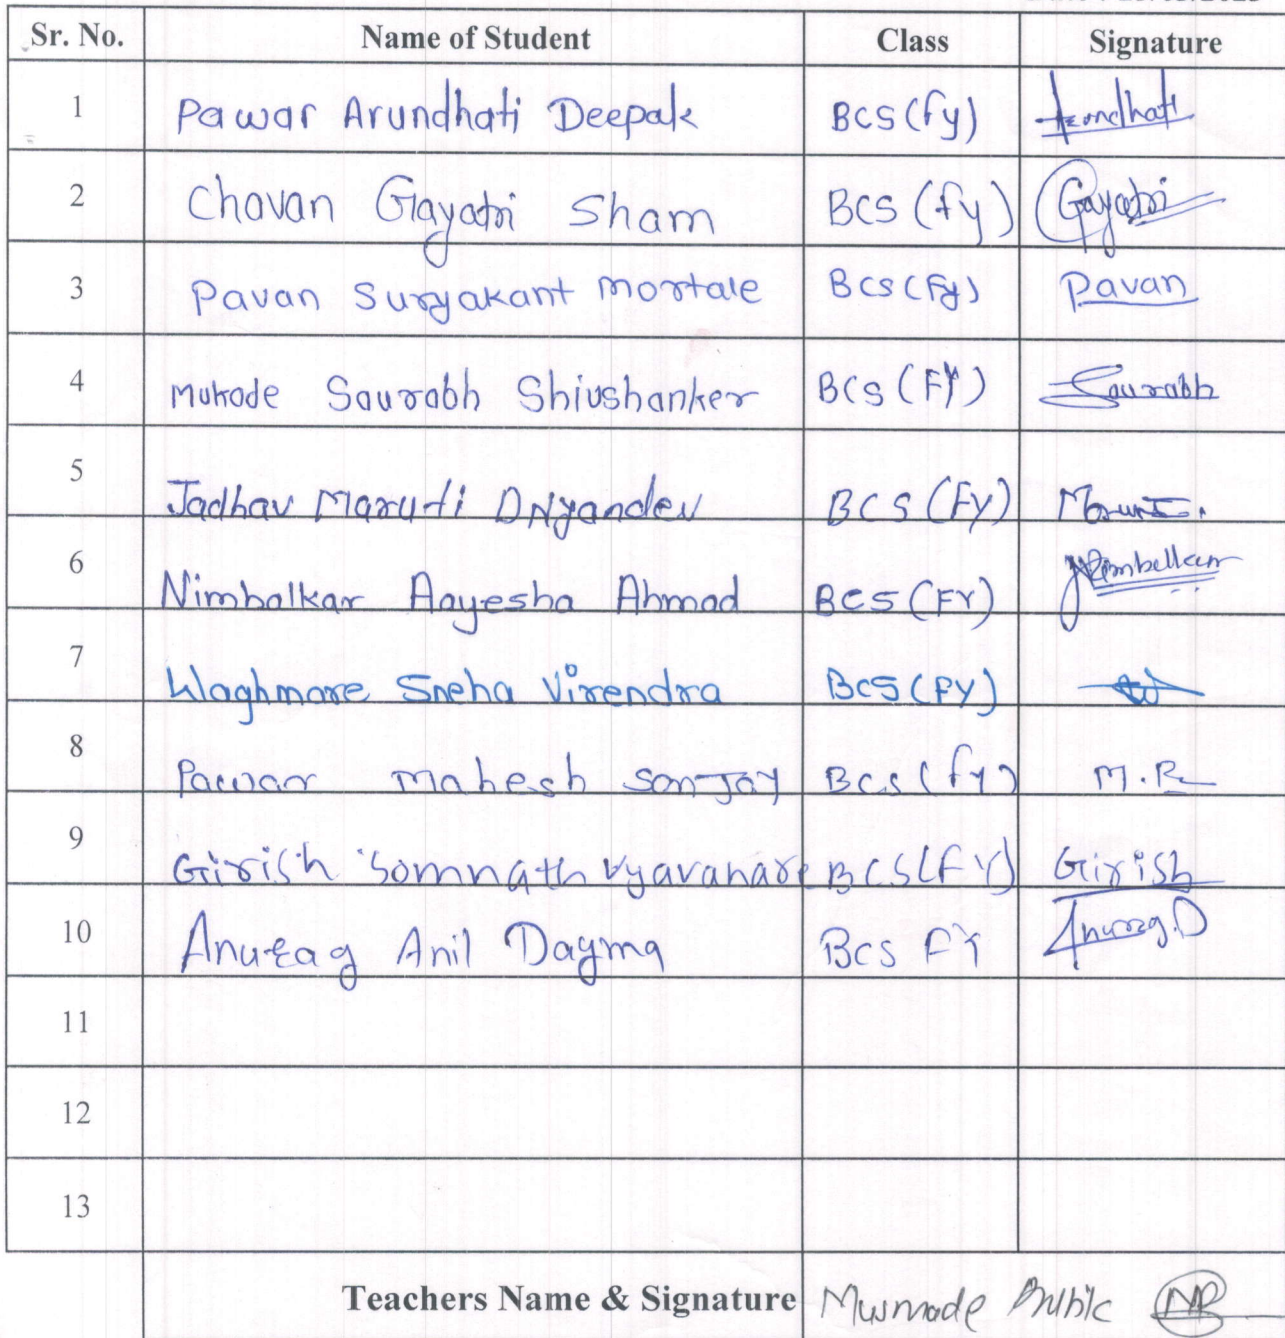 Sr. No. Name of Student Class Signature
1 Pawar Arundhati Deepak BCS (fy) Arundhati
2 Chavan Gayatri Sham BCS (fy) Gayatri
3 Pavan Suryakant mortale BCS (Fy) Pavan
4 Mukade Saurabh Shivshanker BCS (FY) Saurabh
5 Jadhav Maruti DNyandev BCS (FY) Maruti
6 Nimbalkar Aayesha Ahmad BCS (FY) Nimbalkar
7 Waghmare Sneha Virendra BCS (FY)
8 Pawar mahesh sanjay BCS (fy) M.P
9 Girish Somnath Vyavahare BCS (FY) Girish
10 Anurag Anil Dagma BCS FY Anurag.D
11
12
13
Teachers Name & Signature